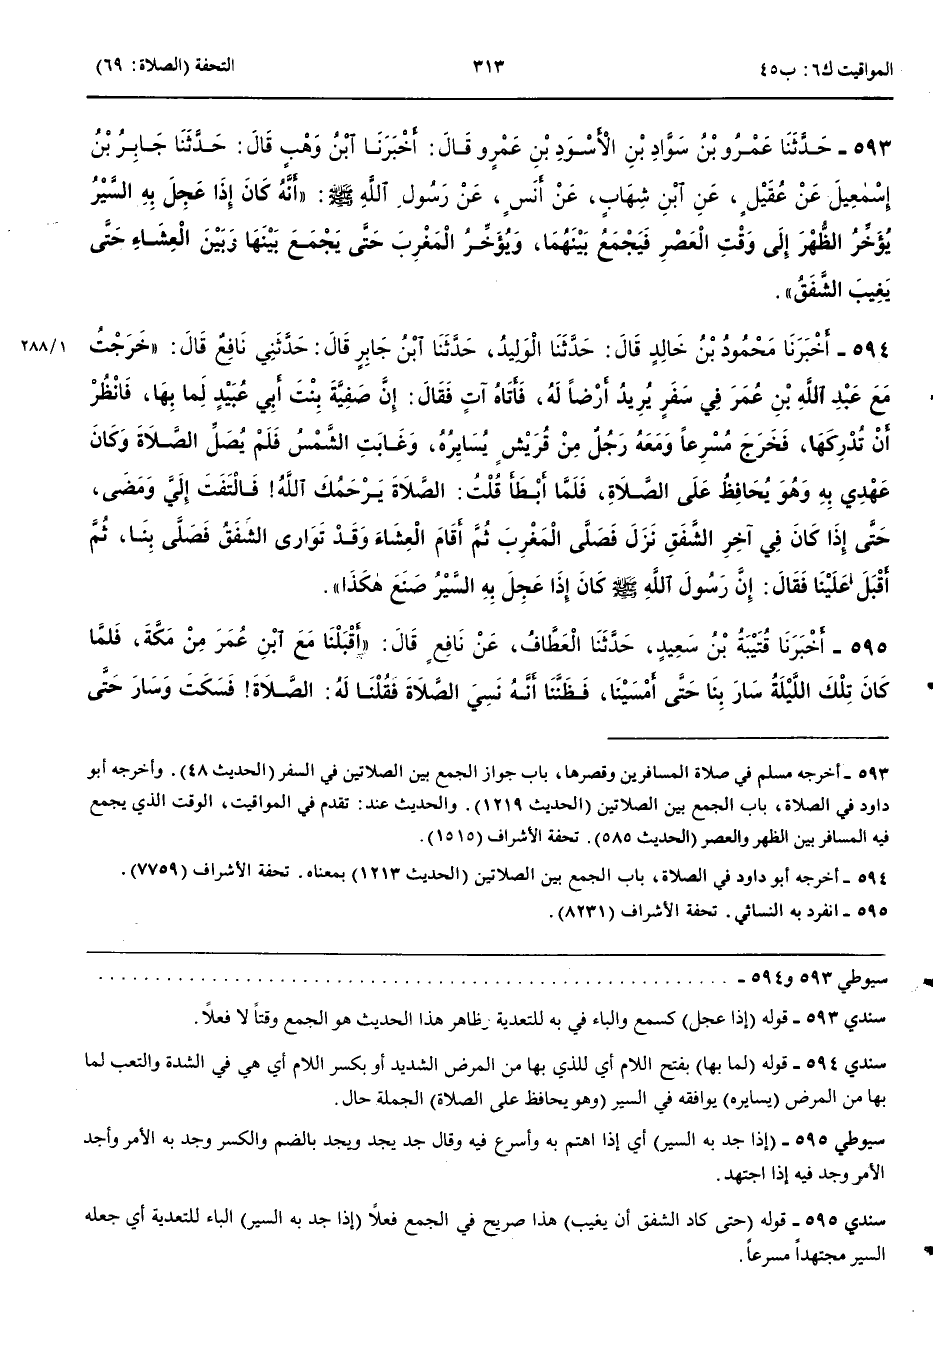 المواقيت ك٦: ب٤٥
٣١٣
التحفة (الصلاة: ٦٩)
٥٩٣ ـ حَدَّثَنَا عَمْرُو بْنُ سَوَّادِ بْنِ الْأَسْوَدِ بْنِ عَمْرٍو قَالَ: أَخْبَرَنَا ٱبْنُ وَهْبٍ قَالَ: حَدَّثَنَا جَابِرُ بْنُ
إِسْمٰعِيلَ عَنْ عُقَيْلٍ، عَنِ ٱبْنِ شِهَابٍ، عَنْ أَنَسٍ، عَنْ رَسُولِ ٱللَّهِ ﷺ: «أَنَّهُ كَانَ إِذَا عَجِلَ بِهِ السَّيْرُ
يُؤَخِّرُ الظُّهْرَ إِلَى وَقْتِ الْعَصْرِ فَيَجْمَعُ بَيْنَهُمَا، وَيُؤَخِّرُ الْمَغْرِبَ حَتَّى يَجْمَعَ بَيْنَهَا وَبَيْنَ الْعِشَاءِ حَتَّى
يَغِيبَ الشَّفَقُ».
٥٩٤ ـ أَخْبَرَنَا مَحْمُودُ بْنُ خَالِدٍ قَالَ: حَدَّثَنَا الْوَلِيدُ، حَدَّثَنَا ٱبْنُ جَابِرٍ قَالَ: حَدَّثَنِي نَافِعٌ قَالَ: «خَرَجْتُ
٢٨٨/١
مَعَ عَبْدِ ٱللَّهِ بْنِ عُمَرَ فِي سَفَرٍ يُرِيدُ أَرْضاً لَهُ، فَأَتَاهُ آتٍ فَقَالَ: إِنَّ صَفِيَّةَ بِنْتَ أَبِي عُبَيْدٍ لِما بِهَا، فَانْظُرْ
أَنْ تُدْرِكَهَا، فَخَرَجَ مُسْرِعاً وَمَعَهُ رَجُلٌ مِنْ قُرَيْشٍ يُسَايِرُهُ، وَغَابَتِ الشَّمْسُ فَلَمْ يُصَلِّ الصَّلَاةَ وَكَانَ
عَهْدِي بِهِ وَهُوَ يُحَافِظُ عَلَى الصَّلَاةِ، فَلَمَّا أَبْطَأَ قُلْتُ: الصَّلَاةَ يَرْحَمُكَ ٱللَّهُ! فَالْتَفَتَ إِلَيَّ وَمَضَى،
حَتَّى إِذَا كَانَ فِي آخِرِ الشَّفَقِ نَزَلَ فَصَلَّى الْمَغْرِبَ ثُمَّ أَقَامَ الْعِشَاءَ وَقَدْ تَوَارى الشَّفَقُ فَصَلَّى بِنَا، ثُمَّ
أَقْبَلَ عَلَيْنَا فَقَالَ: إِنَّ رَسُولَ ٱللَّهِ ﷺ كَانَ إِذَا عَجِلَ بِهِ السَّيْرُ صَنَعَ هٰكَذَا».
٥٩٥ ـ أَخْبَرَنَا قُتَيْبَةُ بْنُ سَعِيدٍ، حَدَّثَنَا الْعَطَّافُ، عَنْ نَافِعٍ قَالَ: «أَقْبَلْنَا مَعَ ٱبْنِ عُمَرَ مِنْ مَكَّةَ، فَلَمَّا
كَانَ تِلْكَ اللَّيْلَةُ سَارَ بِنَا حَتَّى أَمْسَيْنَا، فَظَنَنَّا أَنَّهُ نَسِيَ الصَّلَاةَ فَقُلْنَا لَهُ: الصَّلَاةَ! فَسَكَتَ وَسَارَ حَتَّى
٥٩٣ ـ أخرجه مسلم في صلاة المسافرين وقصرها، باب جواز الجمع بين الصلاتين في السفر (الحديث ٤٨). وأخرجه أبو
داود في الصلاة، باب الجمع بين الصلاتين (الحديث ١٢١٩). والحديث عند: تقدم في المواقيت، الوقت الذي يجمع
فيه المسافر بين الظهر والعصر (الحديث ٥٨٥). تحفة الأشراف (١٥١٥).
٥٩٤ ـ أخرجه أبو داود في الصلاة، باب الجمع بين الصلاتين (الحديث ١٢١٣) بمعناه. تحفة الأشراف (٧٧٥٩).
٥٩٥ ـ انفرد به النسائي. تحفة الأشراف (٨٢٣١).
سيوطي ٥٩٣ و٥٩٤ ـ . . . . . . . . . . . . . . . . . . . . . . . . . . . . . . . . . . . . . . . . . . . .
سندي ٥٩٣ ـ قوله (إذا عجل) كسمع والباء في به للتعدية وظاهر هذا الحديث هو الجمع وقتاً لا فعلاً.
سندي ٥٩٤ ـ قوله (لما بها) بفتح اللام أي للذي بها من المرض الشديد أو بكسر اللام أي هي في الشدة والتعب لما
بها من المرض (يسايره) يوافقه في السير (وهو يحافظ على الصلاة) الجملة حال.
سيوطي ٥٩٥ ـ (إذا جد به السير) أي إذا اهتم به وأسرع فيه وقال جد يجد ويجد بالضم والكسر وجد به الأمر وأجد
الأمر وجد فيه إذا اجتهد.
سندي ٥٩٥ ـ قوله (حتى كاد الشفق أن يغيب) هذا صريح في الجمع فعلاً (إذا جد به السير) الباء للتعدية أي جعله
السير مجتهداً مسرعاً.